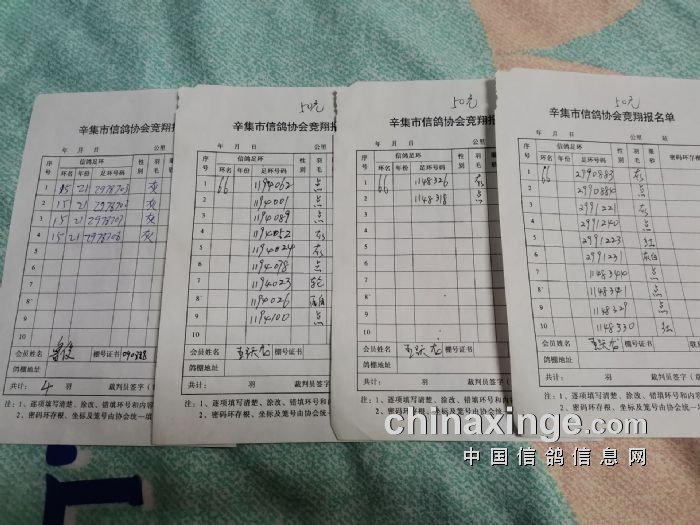 辛集市信鸽协会竞翔
年 月 日 公里
序号 信鸽足环 性别 羽毛
环名 年份 足环号码
1 15 21 7978703 灰
2 15 21 灰
3 15 21 灰
4 15 21 7978706 灰
5
6
7
8
9
10
会员姓名 棚号证书
鸽棚地址
共计: 4 羽 裁判员签字
注:1、逐项填写清楚、涂改、错填环号和内容
2、密码环存根、坐标及笼号由协会统一
50元
辛集市信鸽协会竞翔
年 月 日 公里
序号 信鸽足环 性别 羽毛
环名 年份 足环号码
1 66 1194062 点
2 1194001 点
3 1194089 点
4 1194052 灰
5 1194024 灰
6 1194078 点
7 1194023
8 1194026
9 1194100 点
10
会员姓名 棚号证书
鸽棚地址
共计: 羽 裁判员签字
注:1、逐项填写清楚、涂改、错填环号和内容
2、密码环存根、坐标及笼号由协会统一
50元
辛集市信鸽协会竞翔报
年 月 日 公里
序号 信鸽足环 性别 羽毛
环名 年份 足环号码
1 66 1148326 灰
2 1148318 点
3
4
5
6
7
8
9
10
会员姓名 棚号证书
鸽棚地址
共计: 羽 裁判员签字
注:1、逐项填写清楚、涂改、错填环号和内容
2、密码环存根、坐标及笼号由协会统一
50元
辛集市信鸽协会竞翔报名单
年 月 日 公里 站
序号 信鸽足环 性别 羽毛 眼砂 密码环存
环名 年份 足环号码
1 66 2990883 灰
2 2990884 点
3 2991221 灰
4 2991240 点
5 2991223 红
6 2991231 灰白
7 1148344 点
8 点
9 1148329 点
10 1148330 红
会员姓名 棚号证书
鸽棚地址
共计: 羽 裁判员签字
注:1、逐项填写清楚、涂改、错填环号和内容
2、密码环存根、坐标及笼号由协会统一填
chinaxinge.com
中国信鸽信息网